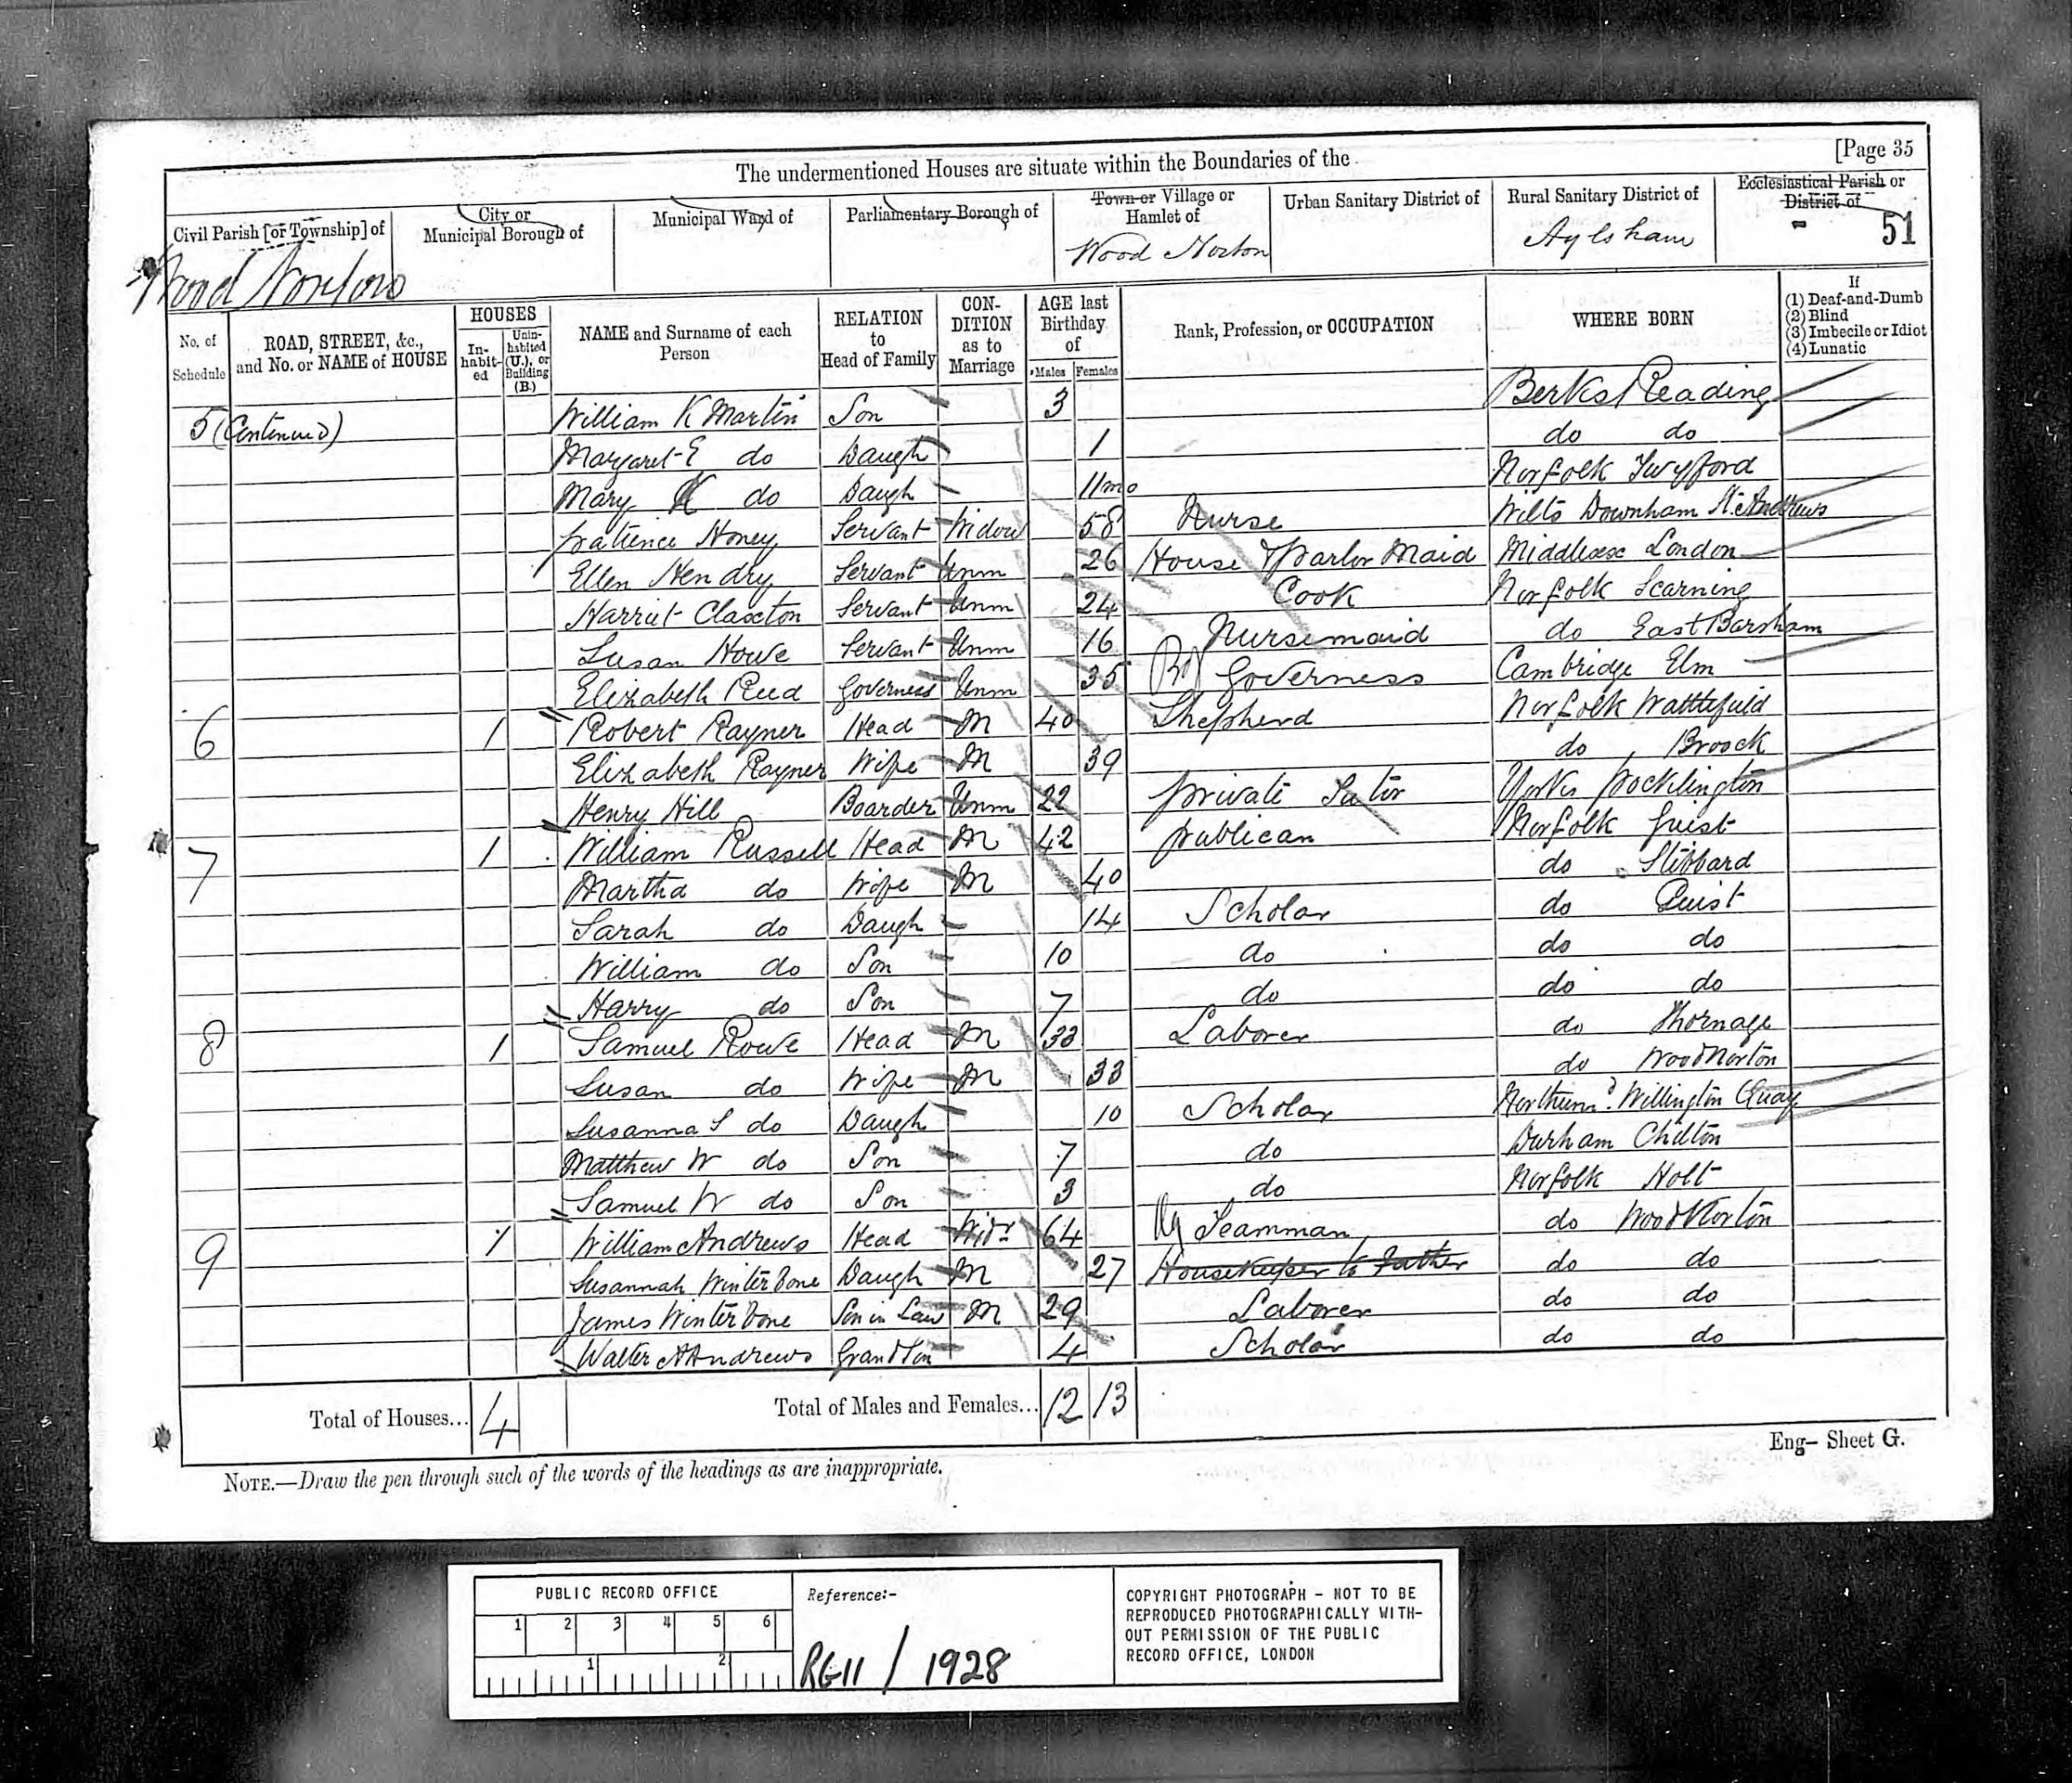 The undermentioned Houses are situate within the Boundaries of the [Page 35
Civil Parish [or Township] of City or Municipal Borough of Municipal Ward of Parliamentary Borough of Town or Village or Hamlet of Urban Sanitary District of Rural Sanitary District of Ecclesiastical Parish or District of
Wood Norton Wood Norton Aylsham - 51
No. of Schedule ROAD, STREET, &c., and No. or NAME of HOUSE HOUSES Inhabited Uninhabited (U.), or Building (B.) NAME and Surname of each Person RELATION to Head of Family CONDITION as to Marriage AGE last Birthday of Males Females Rank, Profession, or OCCUPATION WHERE BORN If (1) Deaf-and-Dumb (2) Blind (3) Imbecile or Idiot (4) Lunatic
5 (Continued) William K Martin Son 3 Berks Reading
Margaret E do Daugh 1 do do
Mary K do Daugh 11mo Norfolk Twyford
Patience Honey Servant Widow 58 Nurse Wilts Downham St. Andrews
Ellen Hendry Servant Unm 26 House & Parlor Maid Middlesex London
Harriet Claxton Servant Unm 24 Cook Norfolk Scarning
Susan Howe Servant Unm 16 Nursemaid do East Barsham
Elizabeth Reed Governess Unm 35 Governess Cambridge Elm
6 1 Robert Rayner Head M 40 Shepherd Norfolk Wattlefield
Elizabeth Rayner Wife M 39 do Broock
Henry Hill Boarder Unm 22 Private Tutor Yorks Pocklington
7 1 William Russell Head M 42 Publican Norfolk Guist
Martha do Wife M 40 do Stibbard
Sarah do Daugh 14 Scholar do Guist
William do Son 10 do do do
Harry do Son 7 do do do
8 1 Samuel Rowe Head M 33 Laborer do Thornage
Susan do Wife M 33 do Wood Norton
Susanna S do Daugh 10 Scholar Northumd. Willington Quay
Matthew W do Son 7 do Durham Chilton
Samuel W do Son 3 do Norfolk Holt
9 1 William Andrews Head Widr 64 Ag Teamman do Wood Norton
Susannah Winterbone Daugh M 27 Housekeeper to Father do do
James Winterbone Son in Law M 29 Laborer do do
Walter A Andrews Grandson 4 Scholar do do
Total of Houses... 4 Total of Males and Females... 12 13
Eng– Sheet G.
NOTE.—Draw the pen through such of the words of the headings as are inappropriate.
PUBLIC RECORD OFFICE
1 2 3 4 5 6
1 2
Reference:-
RG11 / 1928
COPYRIGHT PHOTOGRAPH - NOT TO BE
REPRODUCED PHOTOGRAPHICALLY WITH-
OUT PERMISSION OF THE PUBLIC
RECORD OFFICE, LONDON